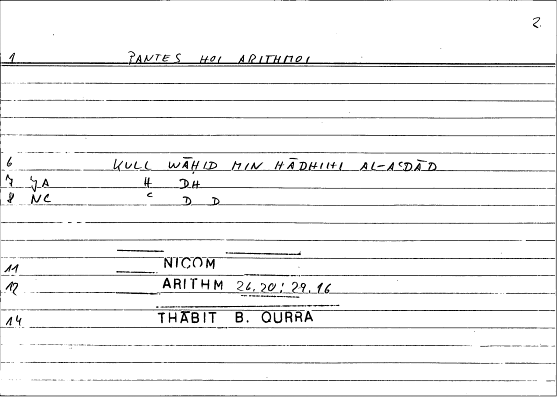 2.
1 PANTES HOI ARITHMOI
6 KULL WĀḤID MIN HĀDHIHI AL-AᶜDĀD
7 YA H DH
8 NC C D D
11 NICOM
12 ARITHM 26.20; 29.16
14 THĀBIT B. QURRA